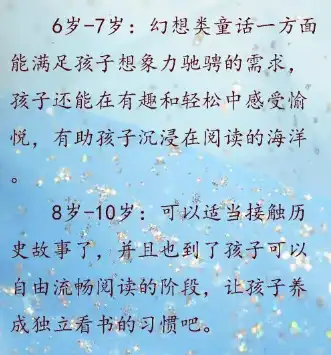 6岁-7岁：幻想类童话一方面
能满足孩子想象力驰骋的需求，
孩子还能在有趣和轻松中感受愉
悦，有助孩子沉浸在阅读的海洋
。
8岁-10岁：可以适当接触历
史故事了，并且也到了孩子可以
自由流畅阅读的阶段，让孩子养
成独立看书的习惯吧。